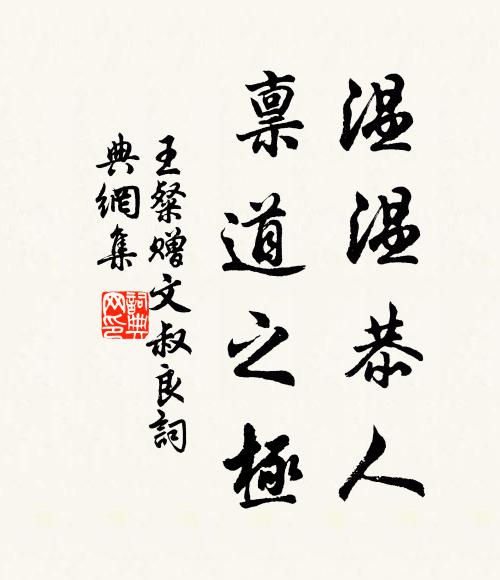 溫溫恭人
稟道之極
王粲贈文叔良詞
典網集
詞典
网印